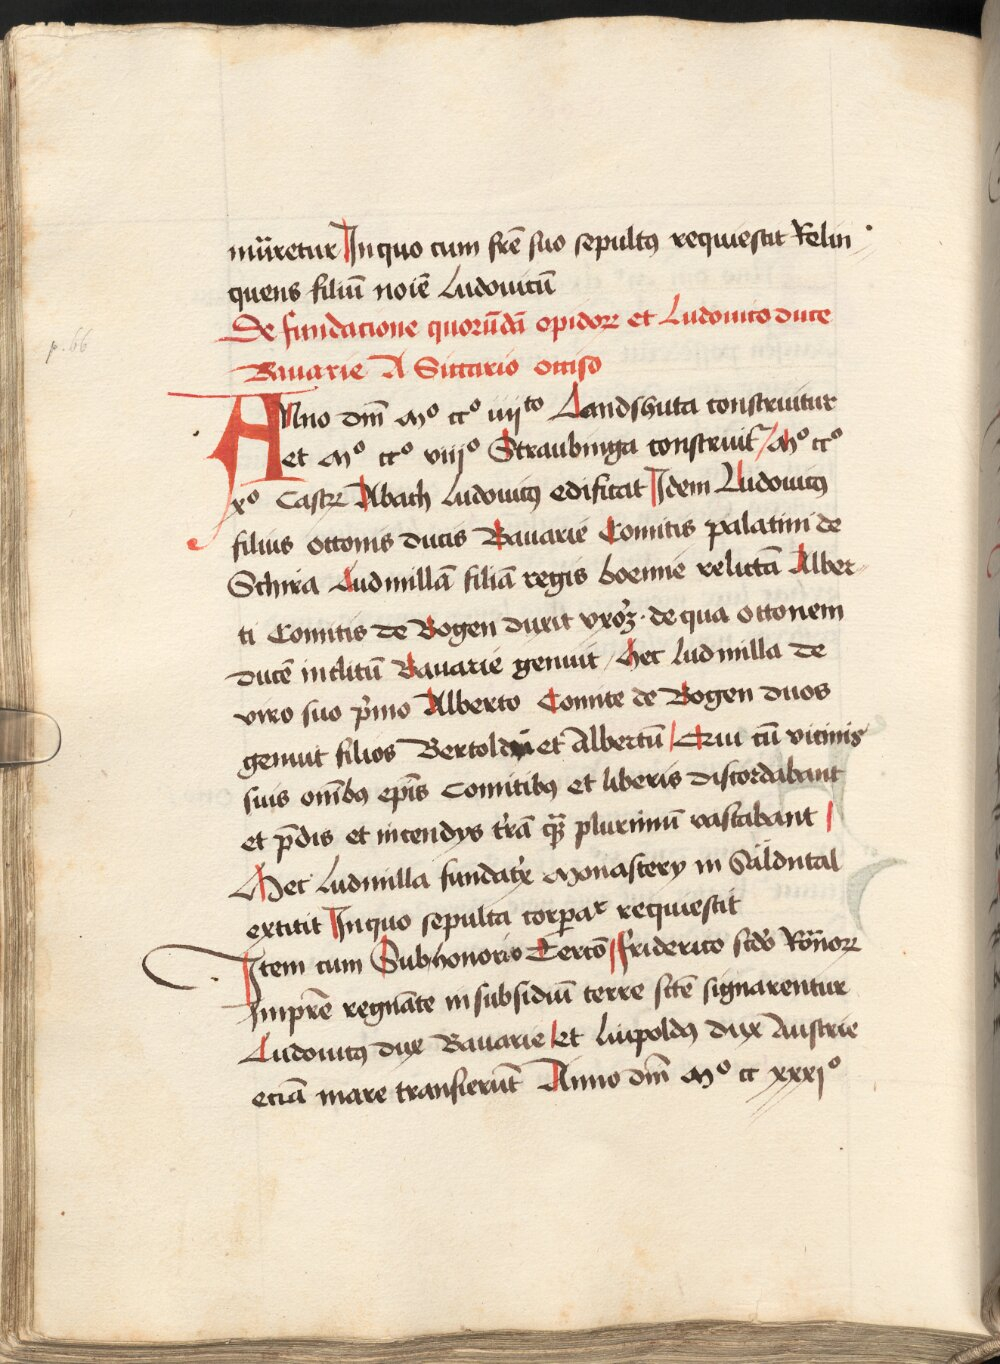 mūretur In quo cum frē suo sepultꝰ requiestit Relin
quens filiū noīe Ludouicū
De fundacione quorūdā opidoꝝ et Ludouico duce
Bauarie A Siccario occiso
Anno dnī Mº ccº iiijto Landshuta construitur
et Mº ccº viijº Straubinga construitᷣ / Mº ccº
xº Castꝝ Abach Ludouicꝰ edificat Idem Ludouicꝰ
filius ottonis ducis Bauarie Comitis palatini de
Schira Ludmillā filiā regis boemie relictā Alber
ti Comitis de Bogen duxit vxoꝝ · de qua ottonem
ducē inclitū Bauarie genuit / Hec Ludmilla de
viro suo pͥmo Alberto Comite de Bogen duos
genuit filios Bertoldū et Albertū / Qui cū vicinis
suis omībꝰ epīs Comitibꝰ et liberis discordabant
et p̄dis et incendys tr̄ā qꝫ plurimū vastabant
Hec Ludmilla fundatͥx Monastery in Säldntal
extitit In quo sepulta corꝑaᷣ requiestit
Item cum Sub honorio Tercō friderico scd̄o Rōnoꝝ
Imp̄re regnāte in subsidiū terre scē signarentur
Ludouicꝰ dux Bauarie et Liupoldꝰ dux Austrie
eciā mare transierūt Anno dnī Mº cc xxxjº
p. 66